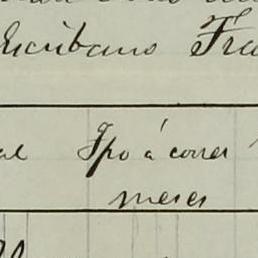 Escribano Fra
al Tpo á correr
meses